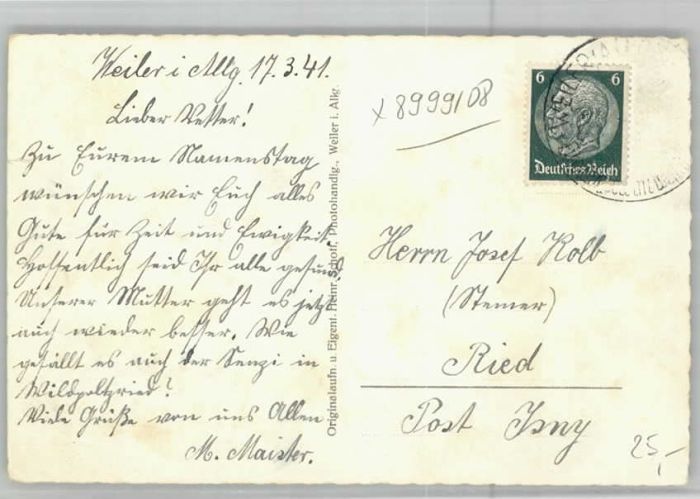 Weiler i Allg. 17.3.41.
Lieber Vetter!
Zu Eurem Namenstag
wünschen wir Euch alles
Gute für Zeit und Ewigkeit.
Hoffentlich seid Ihr alle gesund.
Unserer Mutter geht es jetzt
auch wieder besser. Wie
gefällt es auch der Senzi in
Wildpoltsried?
Viele Grüße von uns Allen
M. Maister.
Originalaufn. u. Eigent. Heinr. Schott, Photohandlg., Weiler i. Allg.
x 8999108
6 6
Deutsches Reich
Herrn Josef Kolb
(Stemer)
Ried
Post Isny
25,-